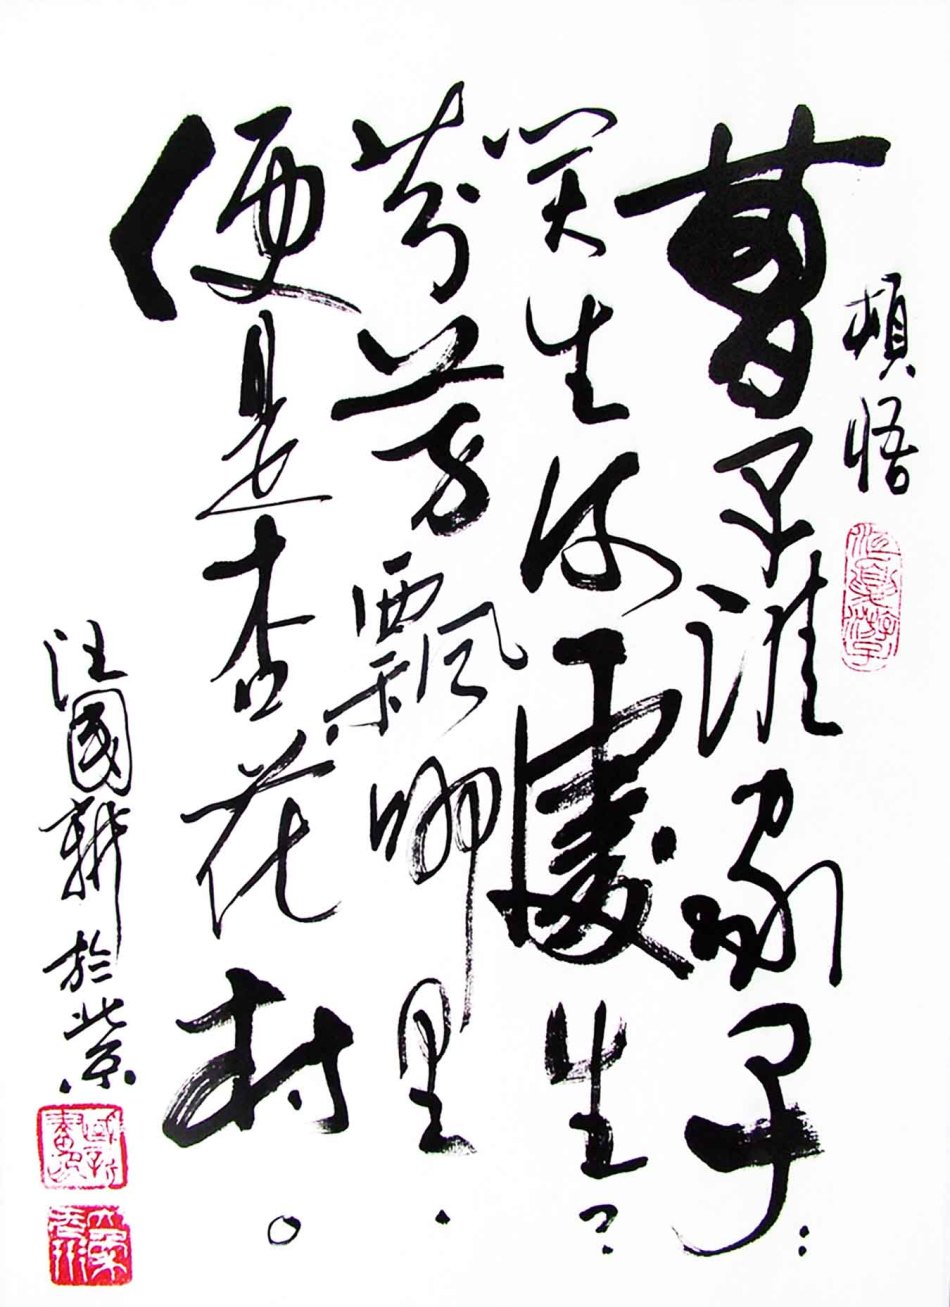 頓悟
曹子誰家子：
笑生何處生？
芬芳飄哪里．
便是杏花村。
汪國新於北京